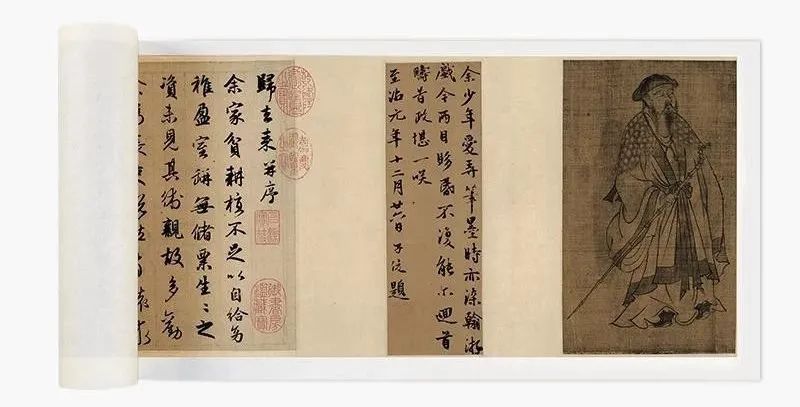 余少年愛弄筆墨時亦染翰游
戲今兩目眵昏不復能尒迴首
疇昔政堪一咲
至治元年十二月廿六日子俊題
歸去來并序
余家貧耕植不足以自給幼
稚盈室缾無儲粟生〻之
資未見其術親故多勸